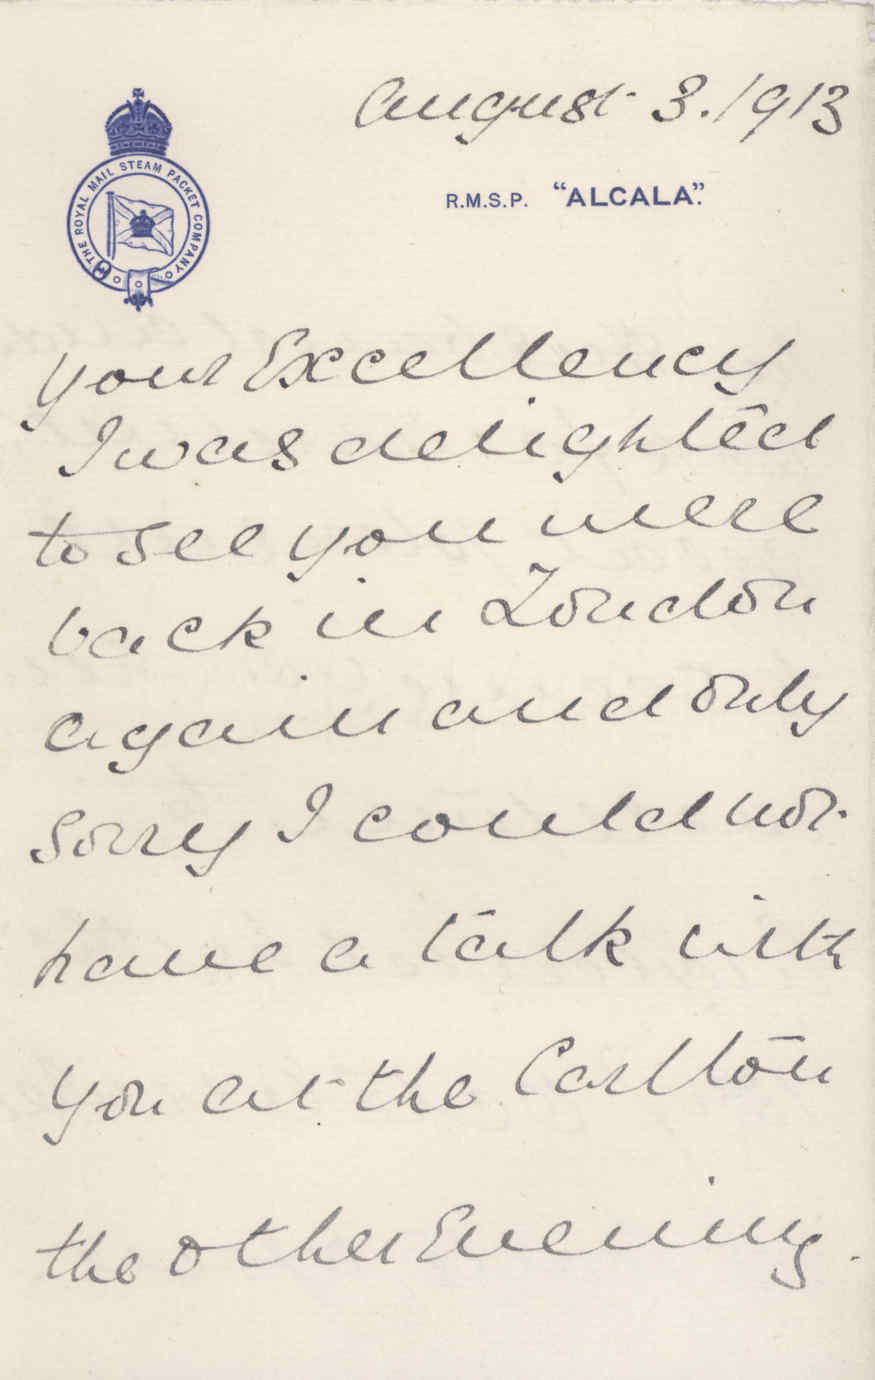 August 3. 1913
THE ROYAL MAIL STEAM PACKET COMPANY
R.M.S.P. "ALCALA".
Your Excellency
I was delighted
to see you were
back in London
again and only
sorry I could not
have a talk with
you at the Carlton
the other Evening.